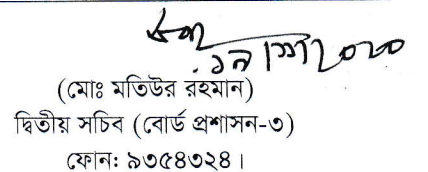 (মোঃ মতিউর রহমান)
দ্বিতীয় সচিব (বোর্ড প্রশাসন-৩)
ফোন: ৯৩৫৪৩২৪।